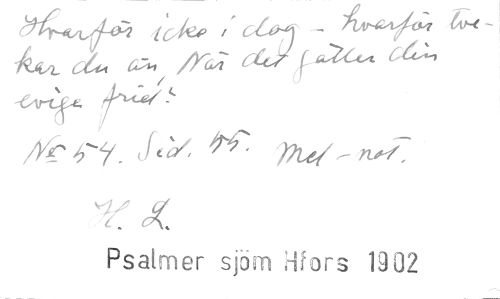 Hvarför icke i dag – hvarför tve-
kar du än, När det gäller din
evige frid?
No 54. Sid. 55. Mel-not.
H. L.
Psalmer sjöm Hfors 1902